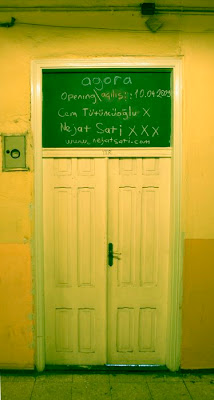 agora
Opening\açılış: 10.04.2009
Cem Tütüncüoğlu X
Nejat Sati XXX
www.nejatsati.com